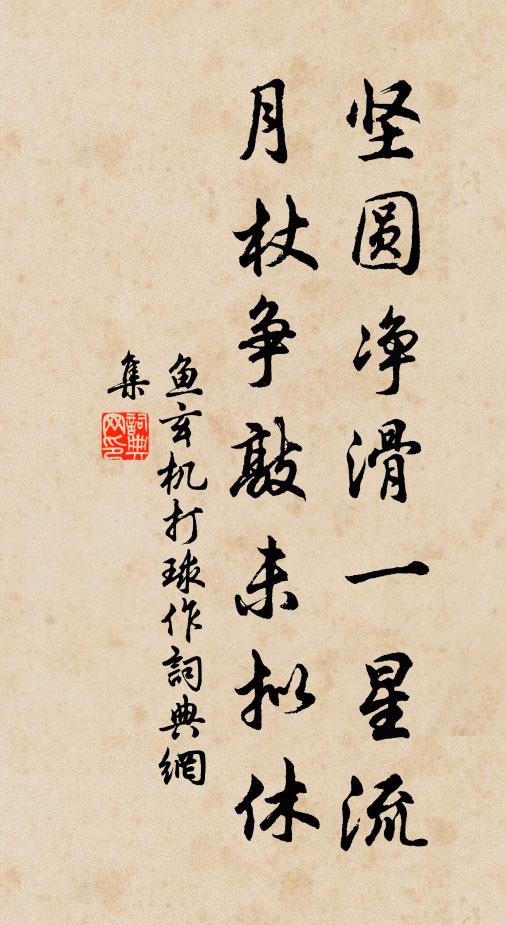 坚圆净滑一星流
月杖争敲未拟休
鱼玄机打球作詞典網
集
詞典网印